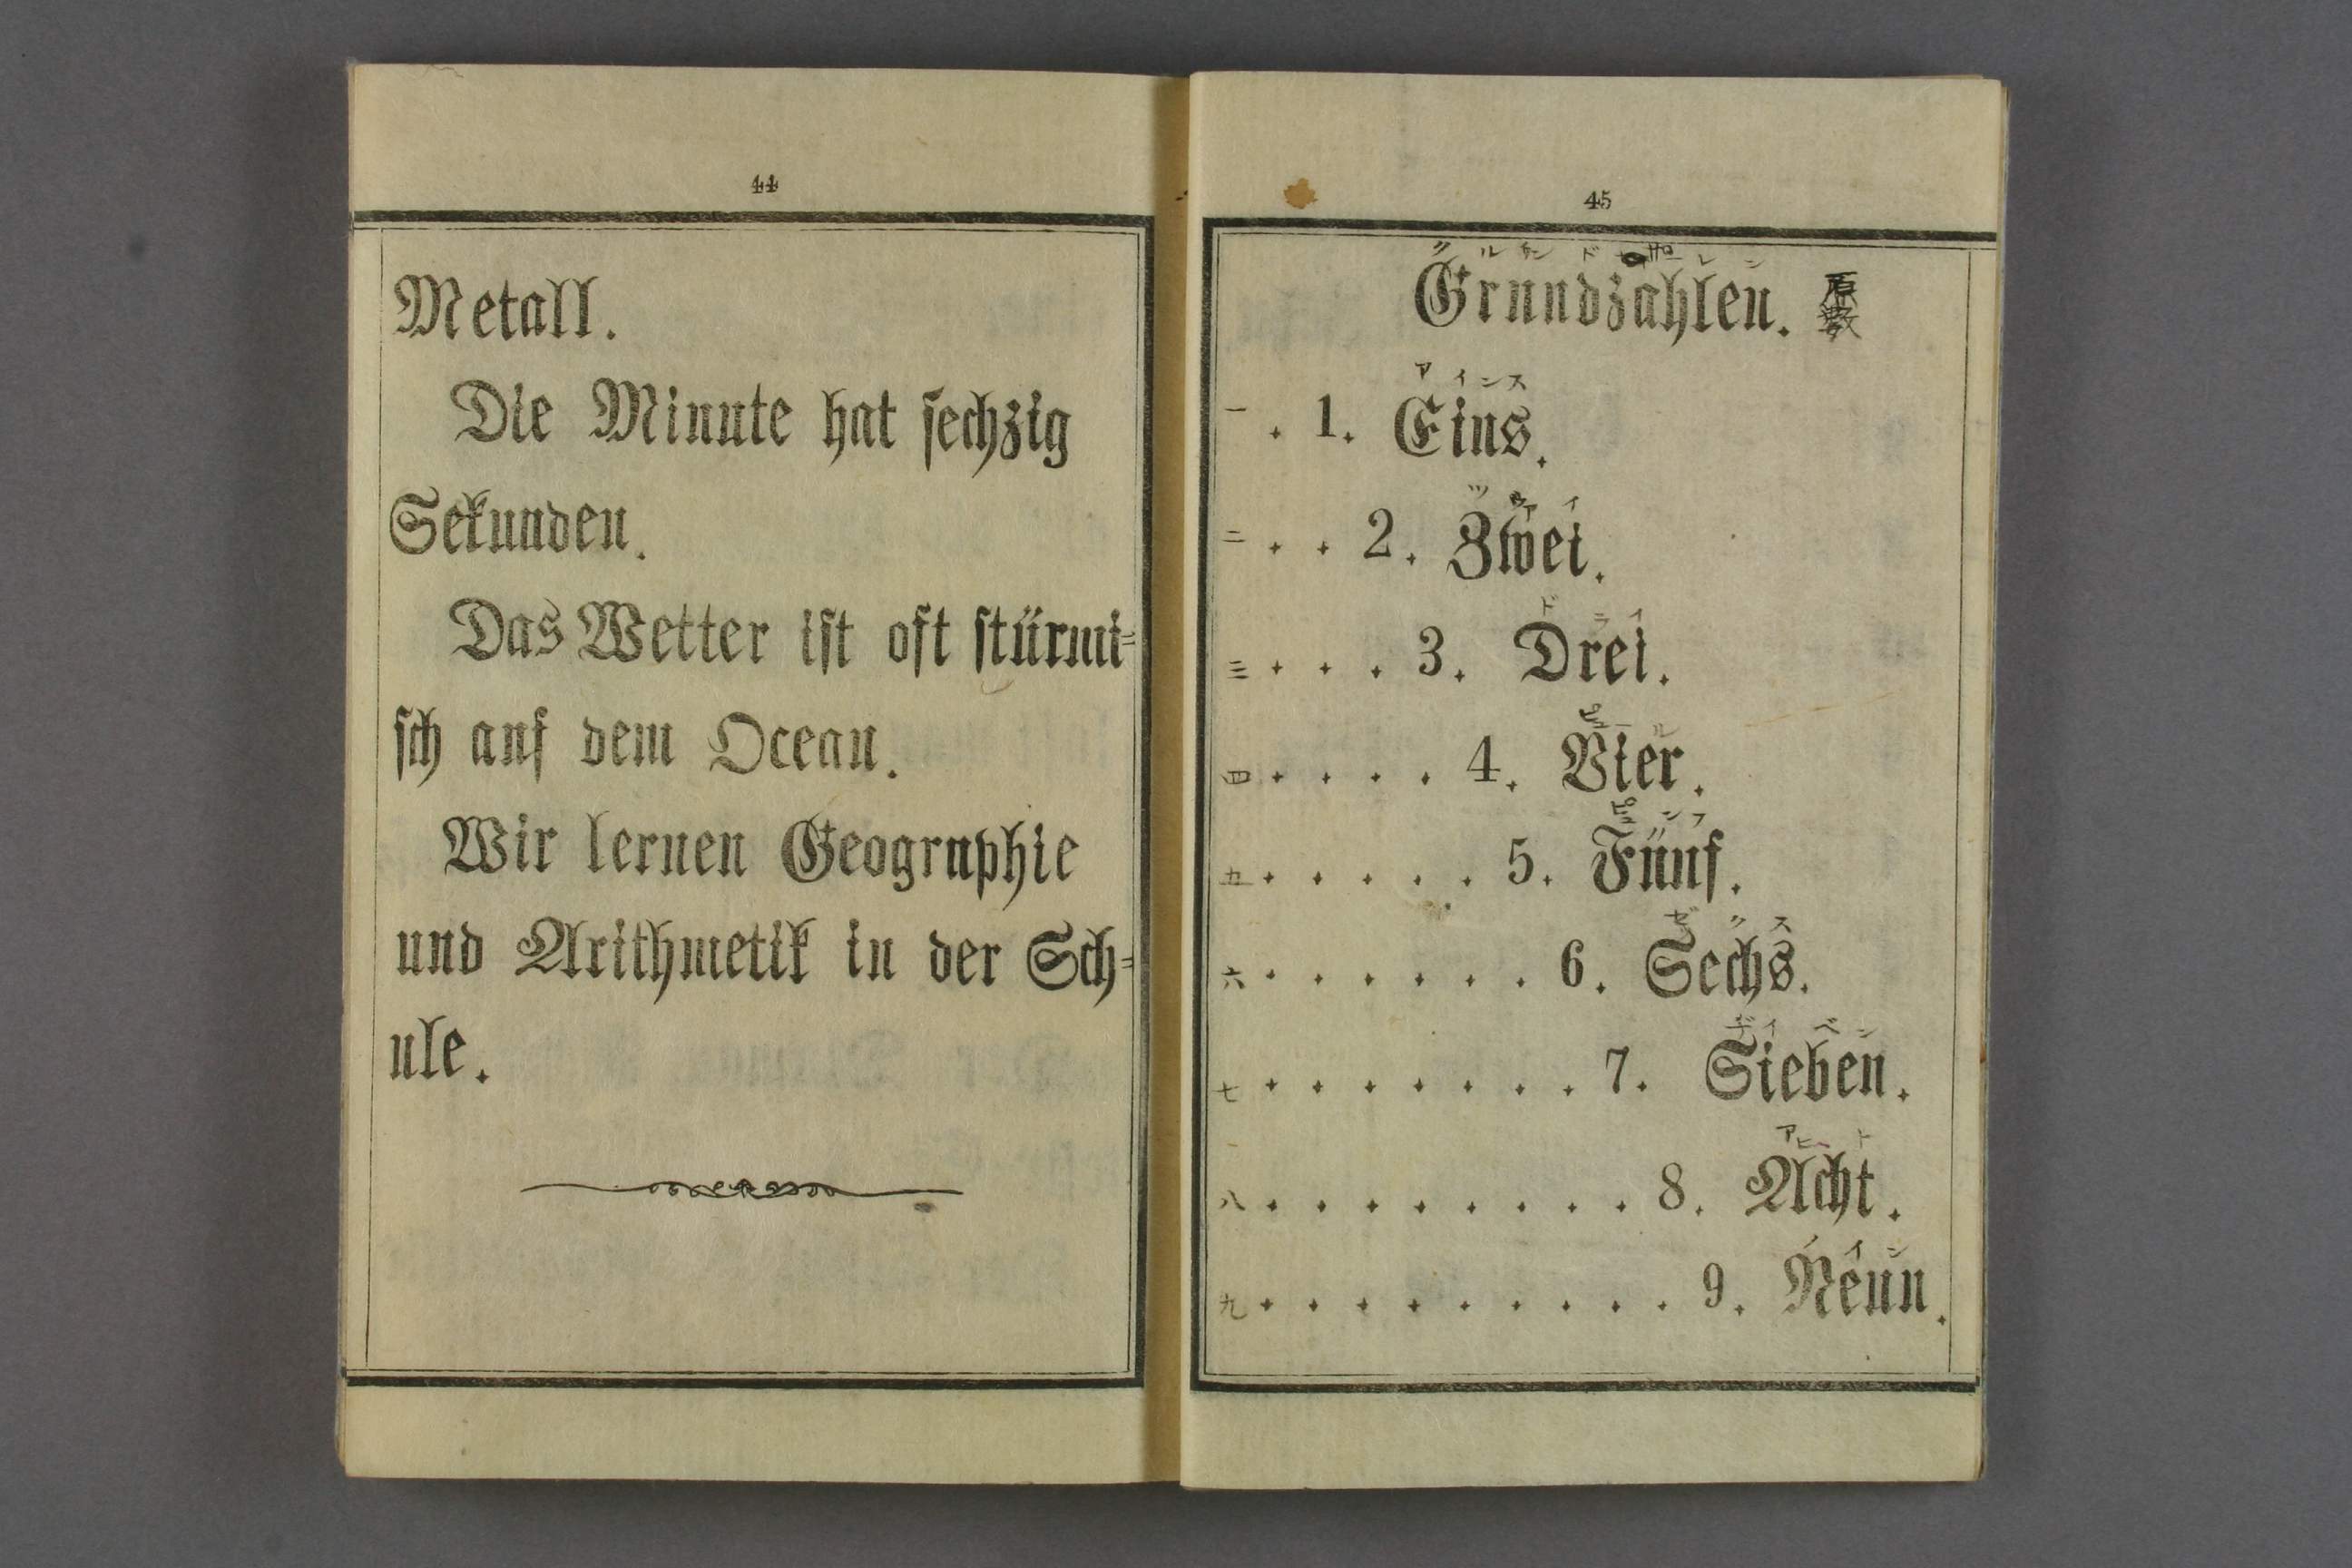 44
Metall.
Die Minute hat ſechzig
Sekunden.
Das Wetter iſt oft ſtürmi=
ſch auf dem Ocean.
Wir lernen Geographie
und Arithmetik in der Sch=
ule.
45
Grundzahlen. 原數
アインス
一 . 1. Eins.
ツワイ
二 . . 2. Zwei.
ドライ
三 . . . 3. Drei.
ヒュール
四 . . . . 4. Vier.
ヒュンフ
五 . . . . . 5. Fünf.
ゼクス
六 . . . . . . 6. Sechs.
ヂイベン
七 . . . . . . . 7. Sieben.
アヒト
八 . . . . . . . . 8. Acht.
ノイン
九 . . . . . . . . . 9. Neun.